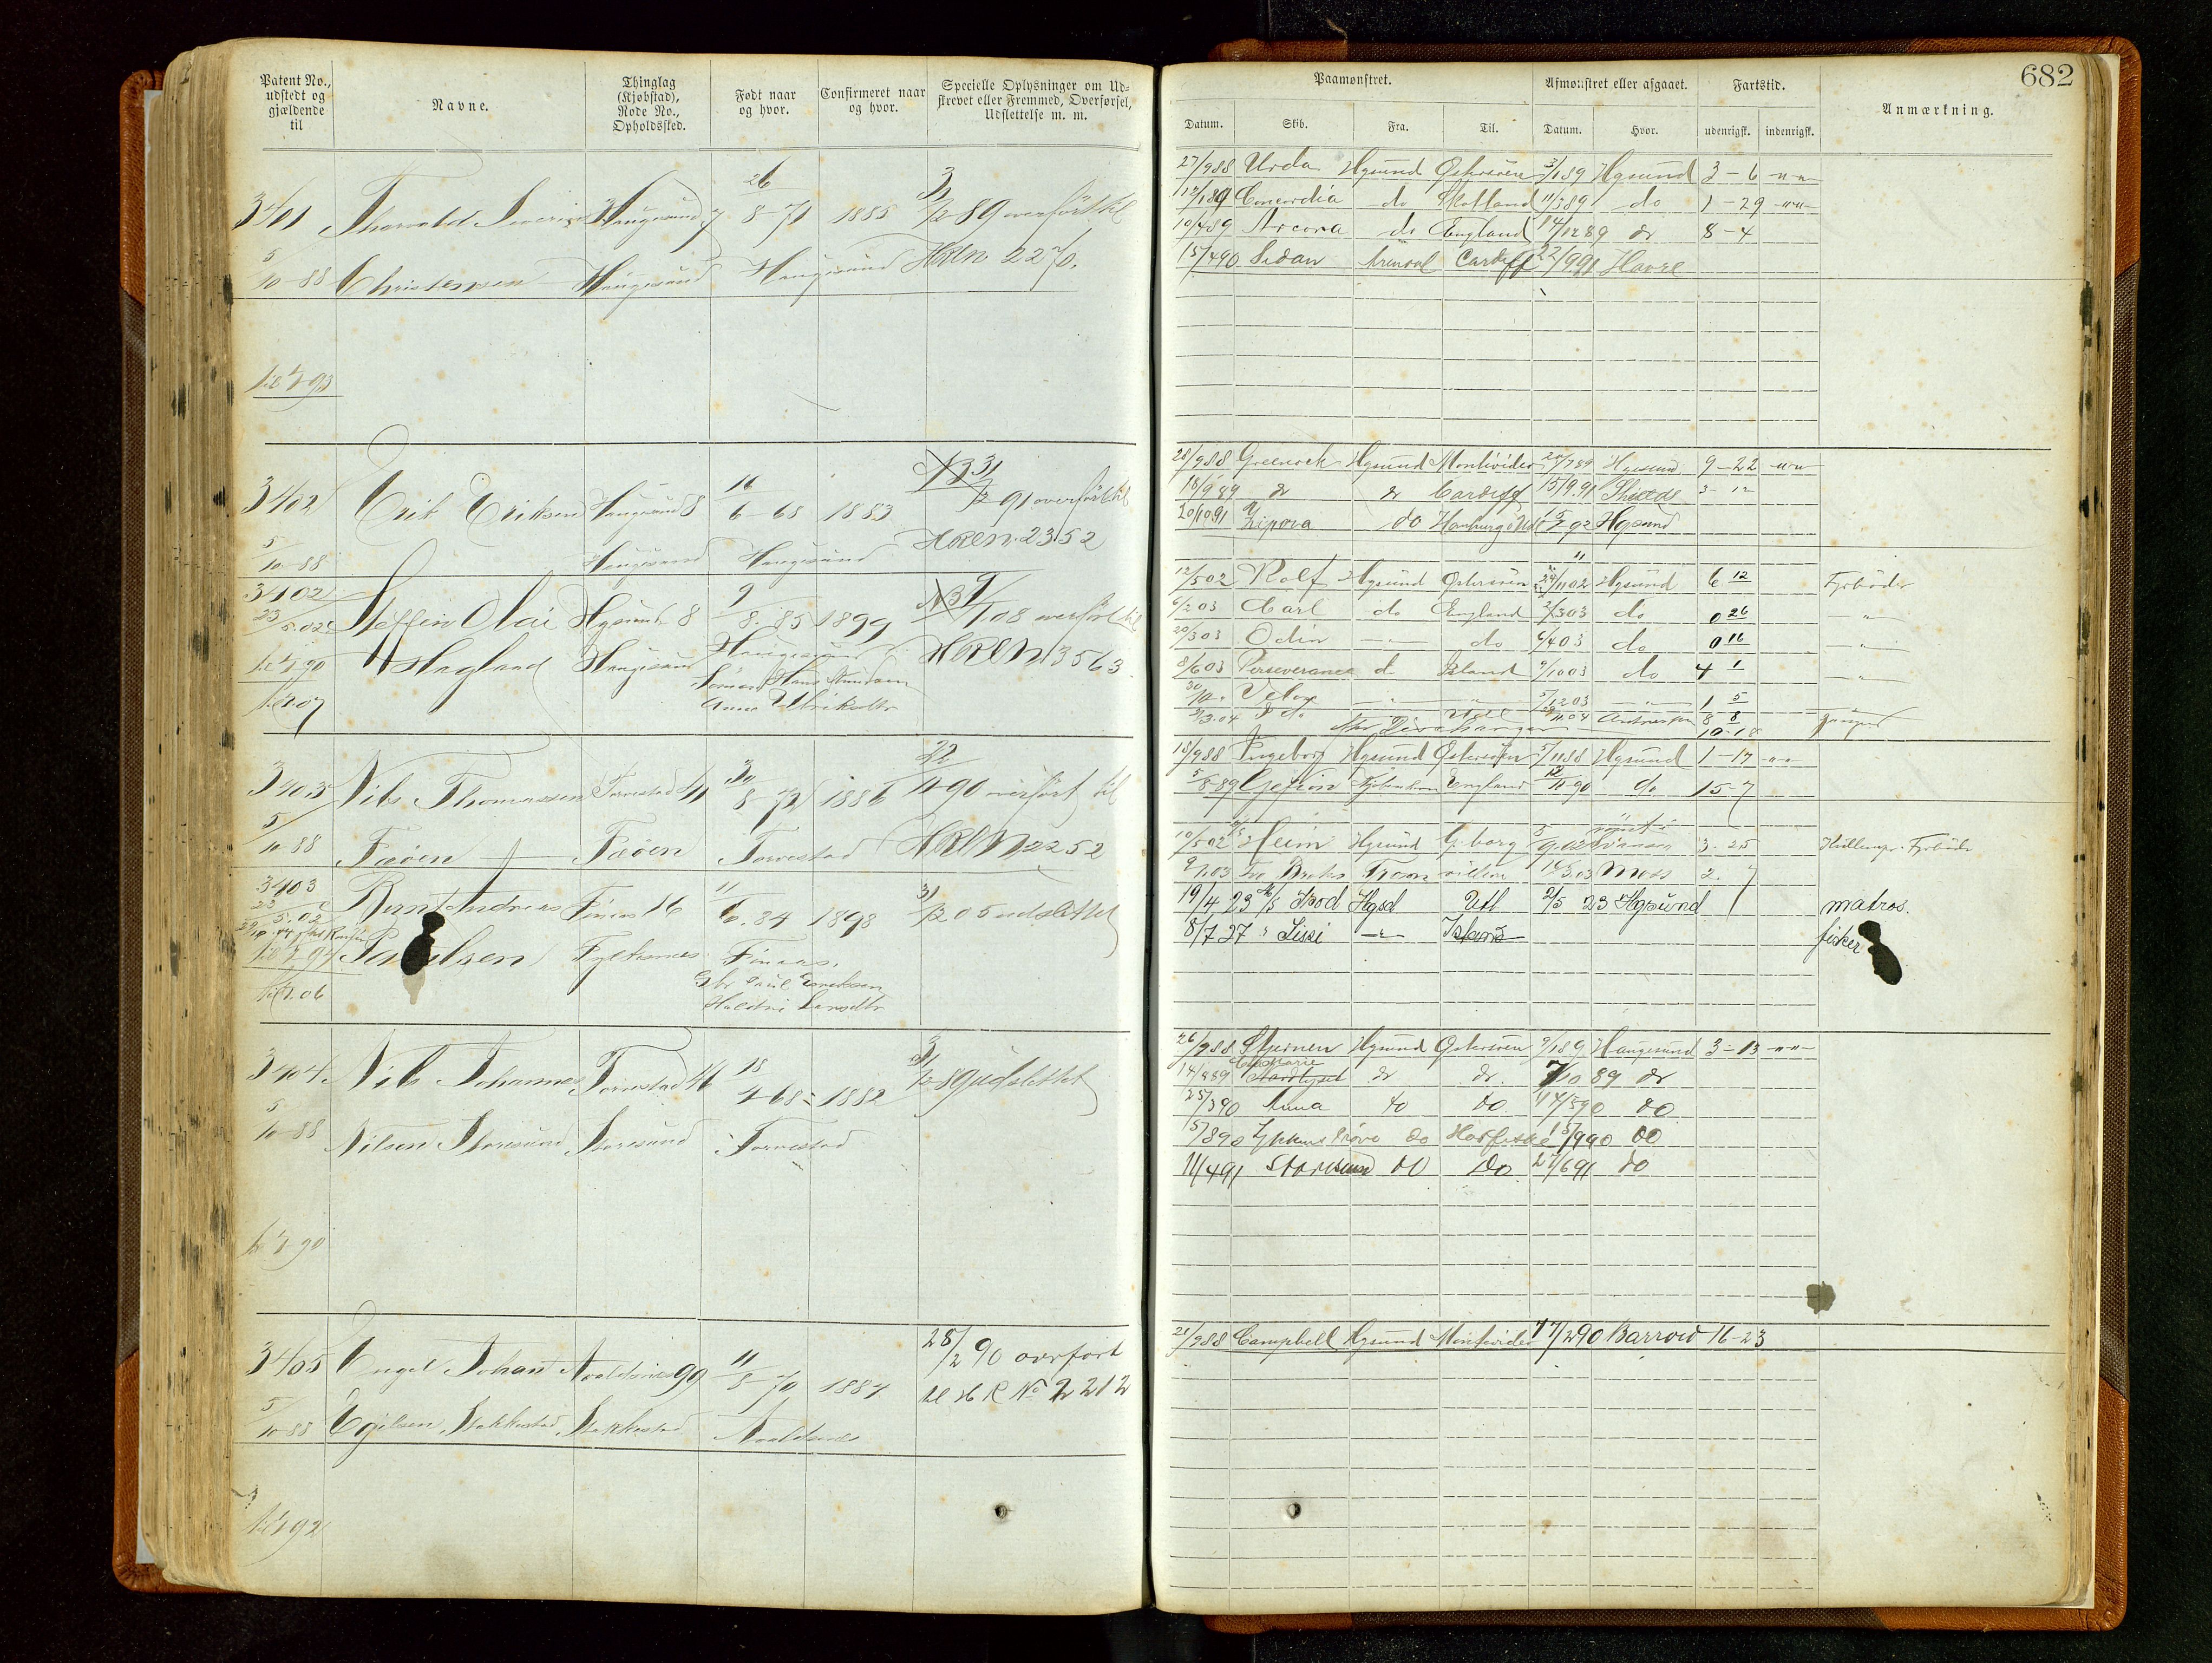 682
Patent No., udstedt og gjældende til
Navne.
Thinglag (Kjøbstad), Rode No., Opholdssted.
Født naar og hvor.
Confirmeret naar og hvor.
Specielle Oplysninger om Udskrevet eller Fremmed, Overførsel, Udslettelse m. m.
Paamønstret.
Afmønstret eller afgaaet.
Fartstid.
Anmærkning.
Datum. Skib. Fra. Til. Datum. Hvor. udenrigsk. indenrigsk.
3401 Thorvald Severin Haugesund 7 26/8-71 1885 3/12 89 overført til
5/10-88 Christensen Haugesund Haugesund HRLN 2270.
til 1/1 93
27/9 88 Urda Hgsund Østersøen 3/1 89 Hgsund 3-6 -"-
12/1 89 Concordia do Skotland 11/3 89 do 1-29 -"-
10/4 89 Arcona do England 14/12 89 do 8-4
15/4 90 Sedan Arendal Cardiff 22/9 91 Havre
3402 Erik Eriksen Haugesund 8 16/6-68 1883 31/12 91 overført til
5/10-88 Haugesund Haugesund HRLN. 2352
28/9 88 Greenock Hgsund Montevideo 20/7 89 Hgesund 9-22 -"-
18/9 89 do do Cardiff 15/9.91 Shields 3-12
20/10 91 Zipora do Hamburg 92 Hgsund
3402 Steffen Olai Hgsund 8 9/8.85 1899 1/1 08 overført til
23/5.02 Hagland Haugesund Haugesund HRLN 3563
til 1/1 90 Hans Knudsen
til 1/1 07 Anna Ulriksdtr
12/5 02 Rolf Hgsund Østersøen 24/11 02 Hgsund 6 12 Fyrbøder
6/2 03 Carl do England 2/3 03 do 0 26 -"-
20/3 03 Odin -"- do 6/4 03 do 0 16 -"-
8/6 03 Perseverance do Island 9/10 03 do 4 1 -"-
30/10 " Velox -"- -"- 5/12 03 -"- 1 5
9/3.04 do Udl 11.04 Antwerpen 8 8
10-18
3403 Nils Thomassen Torvestad 41 30/8-72 1886 22/11-90 overført til
5/10 88 Fæøen Fæøen Torvestad HRLN 2252
18/9 88 Ingeborg Hgsund Østersøen 5/11 88 Hgsund 1-17 -"-
5/8-89 Gefion England 12/11-90 do 15-7
3403 Bernt Andreas Finnas 16 11/6.84 1898 31/12 05 udslettet
23/5.02
til 1/1 97 Paulsen Fylkesnes Finnas.
til 1/1.06 Paul Larsdtr
10/5 02 Heim Hgsund G.borg 5/9.02 3.25 Fyrbøder
9/1.03 To Brødre 14/3.03 Moss 2. 7
19/4 23 Hgsd Utl 2/5 23 Hgsund matros.
8/7 27 " Sissi -"- Island fisker
3404 Nils Johannes Torvestad 46 18/4-68 1882 31/12-89 udslettet
5/10-88 Nilsen Storesund Storesund Torvestad
til 1/1-90
26/9 88 Stjernen Hgsund Østersøen 9/1 89 Haugesund 3-13 -"-
14/8 89 Nordlyset do do. 7/10 89 do
25/3 90 Anna do do 14/5 90 do
5/8 90 Lykkens Prøve do Havfiske 15/9 90 do
11/4 91 Storesund do do 27/6 91 do
3405 Engel Johan Avaldsnes 99 11/8-70 1887 28/2 90 overført
5/10-88 Egilsen Stakkestad Stakkestad Avaldsnes til HR No 2212
til 1/1 92
21/9 88 Campbell Hgsund Montevideo 17/2 90 Barrow 16-23